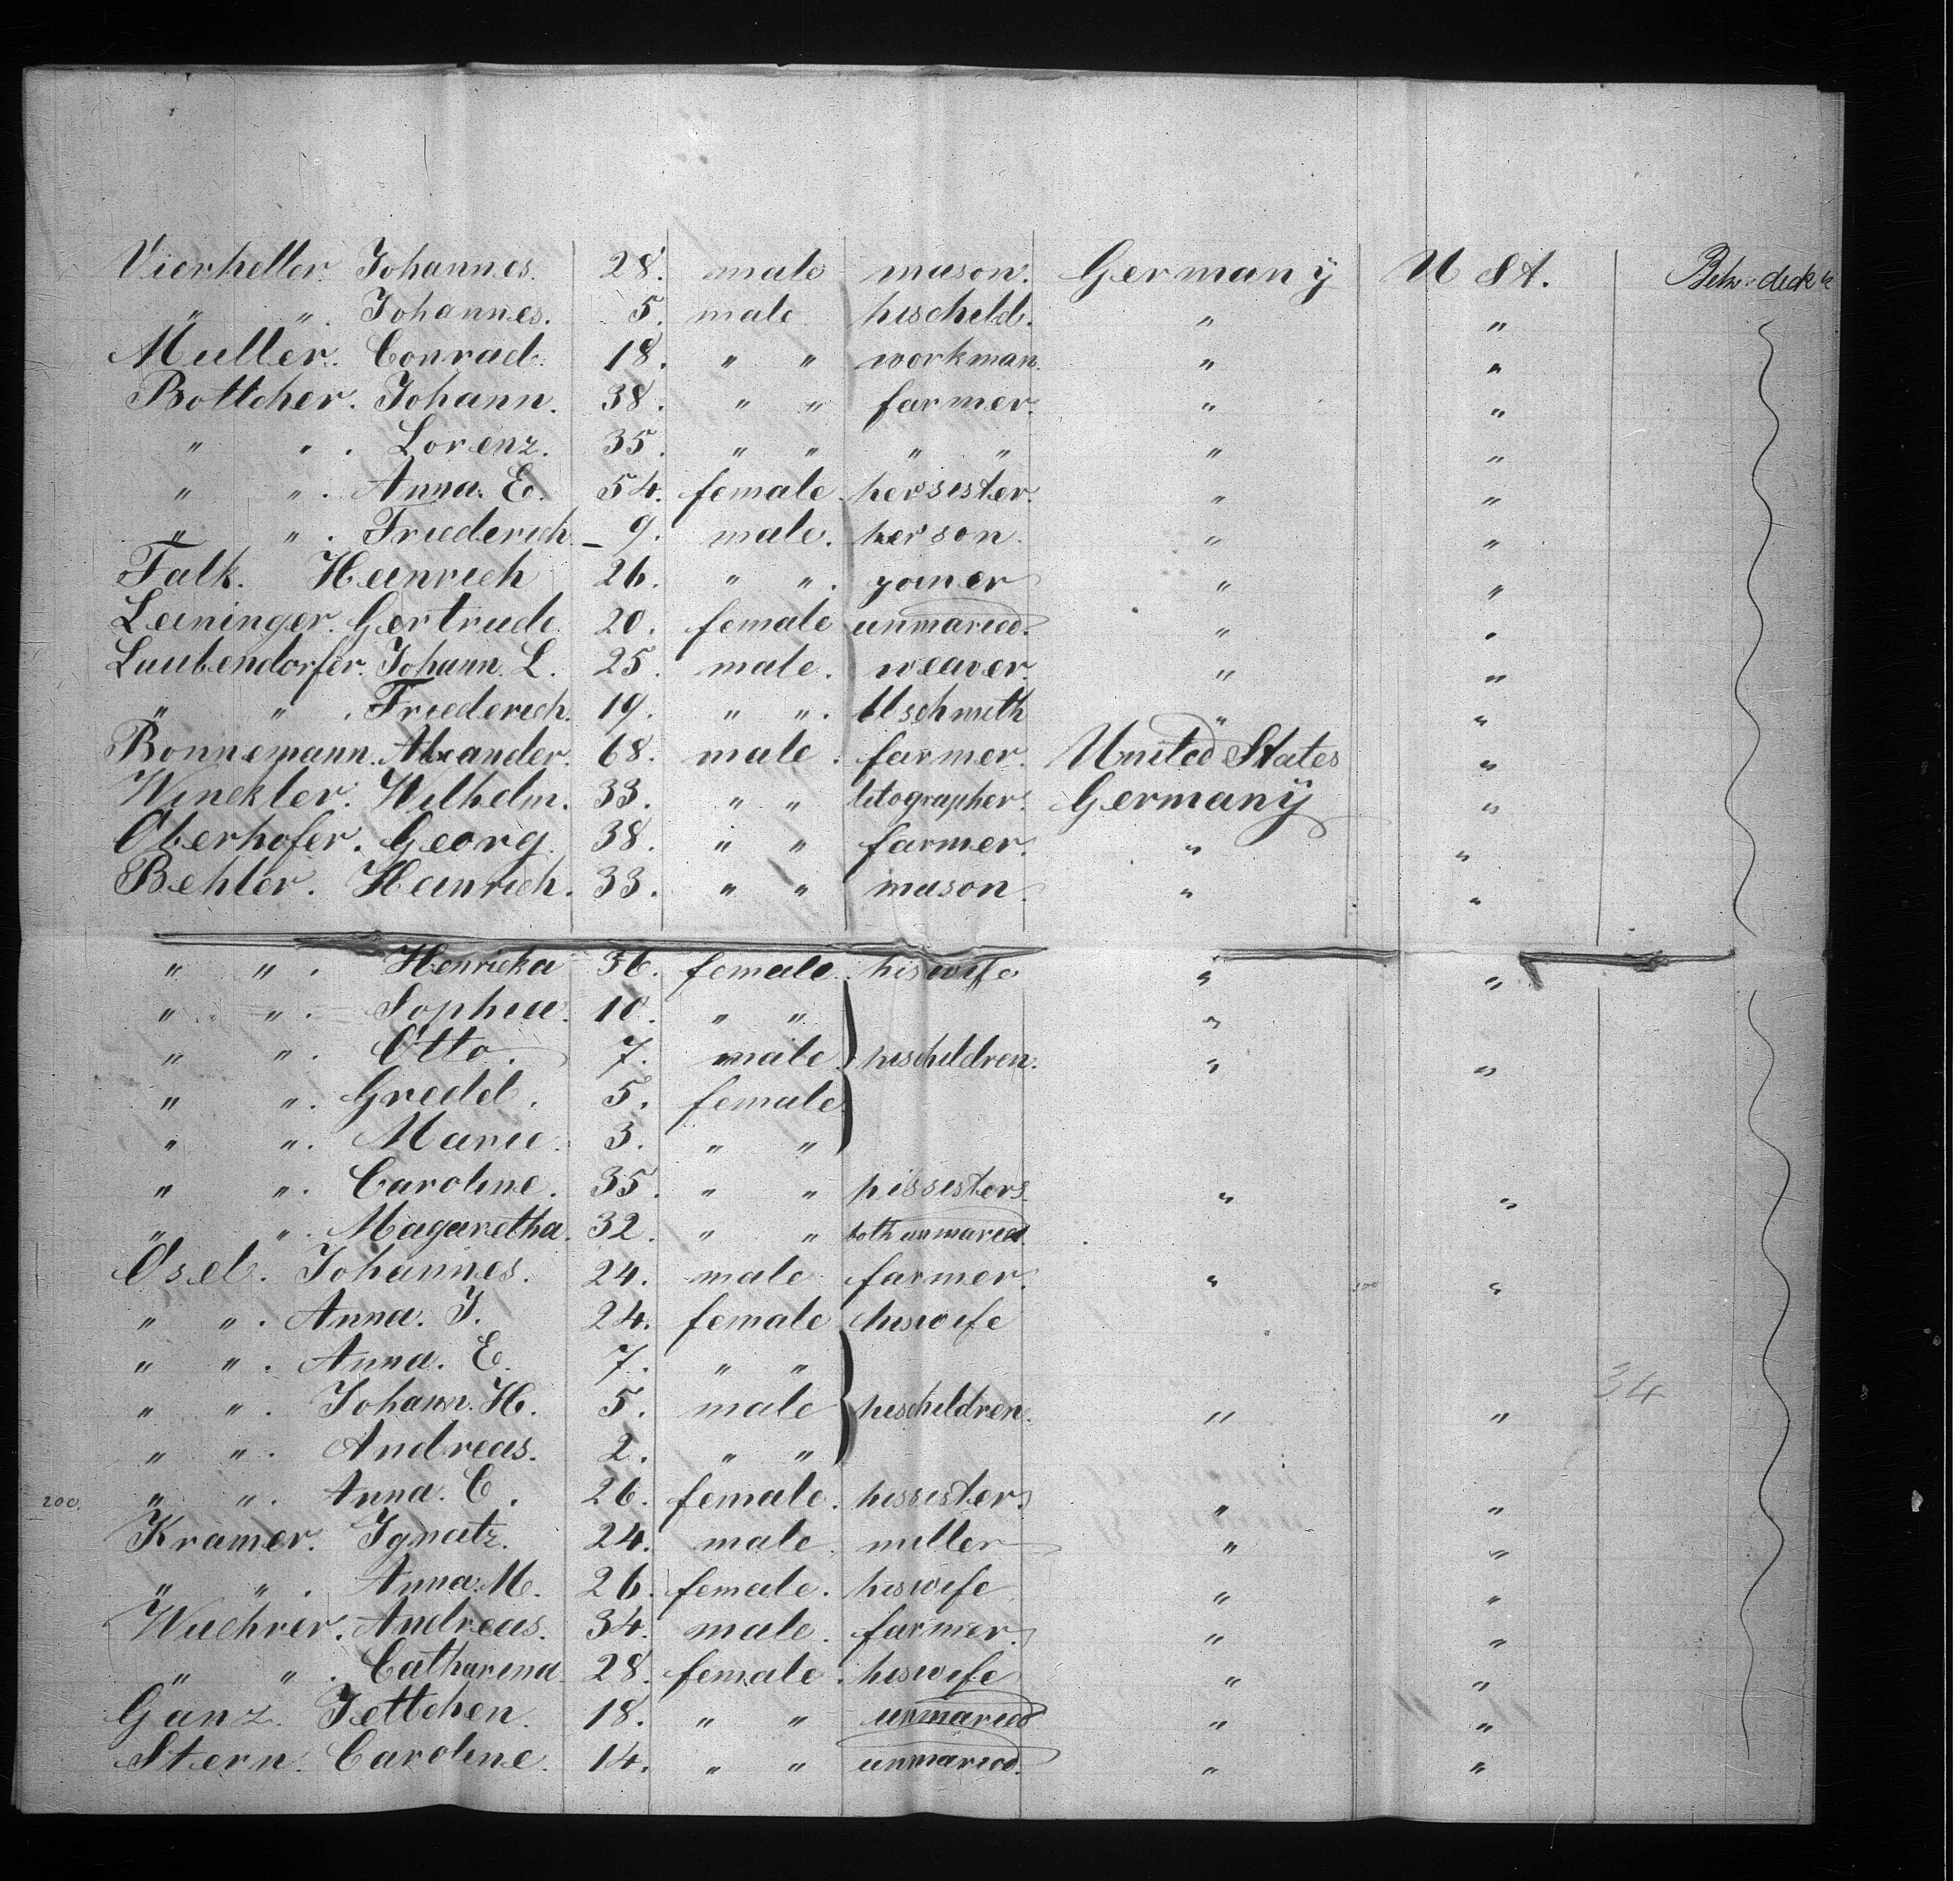 Vierheller. Johannes. 28. male mason. Germany U St. Betw. deck
" ". Johannes. 5. male hischild. " "
Muller. Conrad. 18. " " workman. " "
Bottcher. Johann. 38. " " farmer. " "
" ". Lorenz. 35. " " " " " "
" ". Anna. E. 54. female. hersister. " "
" ". Friederich 9. male. herson. " "
Falk. Heinrich 26. " ". joiner " "
Leininger. Gertrude. 20. female unmaried. " "
Luubendorfer. Johann. L. 25. male. weaver. " "
" ". Friederich. 19. " ". blschmith " "
Bonnemann. Alexander. 68. male. farmer. United States "
Winckler. Wilhelm. 33. " " litographer. Germany "
Oberhofer. Georg. 38. " " farmer. " "
Behler. Heinrich. 33. " " mason. " "
" ". Henricka 36. female. hiswife " "
" ". Sophia. 10. " " "
" ". Otto. 7. male. hischildren. " "
" ". Gredel. 5. female.
" ". Marie. 3. " "
" ". Caroline. 35. " " hissisters " "
" ". Magaretha. 32. " " both unmaried.
Osel. Johannes. 24. male farmer. " "
" ". Anna. J. 24. female hiswife
" ". Anna. E. 7. " "
34
" ". Johann. H. 5. male hischildren. " "
" ". Andreas. 2. " "
200. " ". Anna. C. 26. female. hissister. " "
Kramer. Ignatz. 24. male. miller " "
" ". Anna. M. 26. female. hiswife " "
Wuehrer. Andreas. 34. male. farmer. " "
" ". Catharina. 28. female. hiswife " "
Ganz. Jettchen. 18. " " unmaried " "
Stern. Caroline. 14. " " unmaried. " "